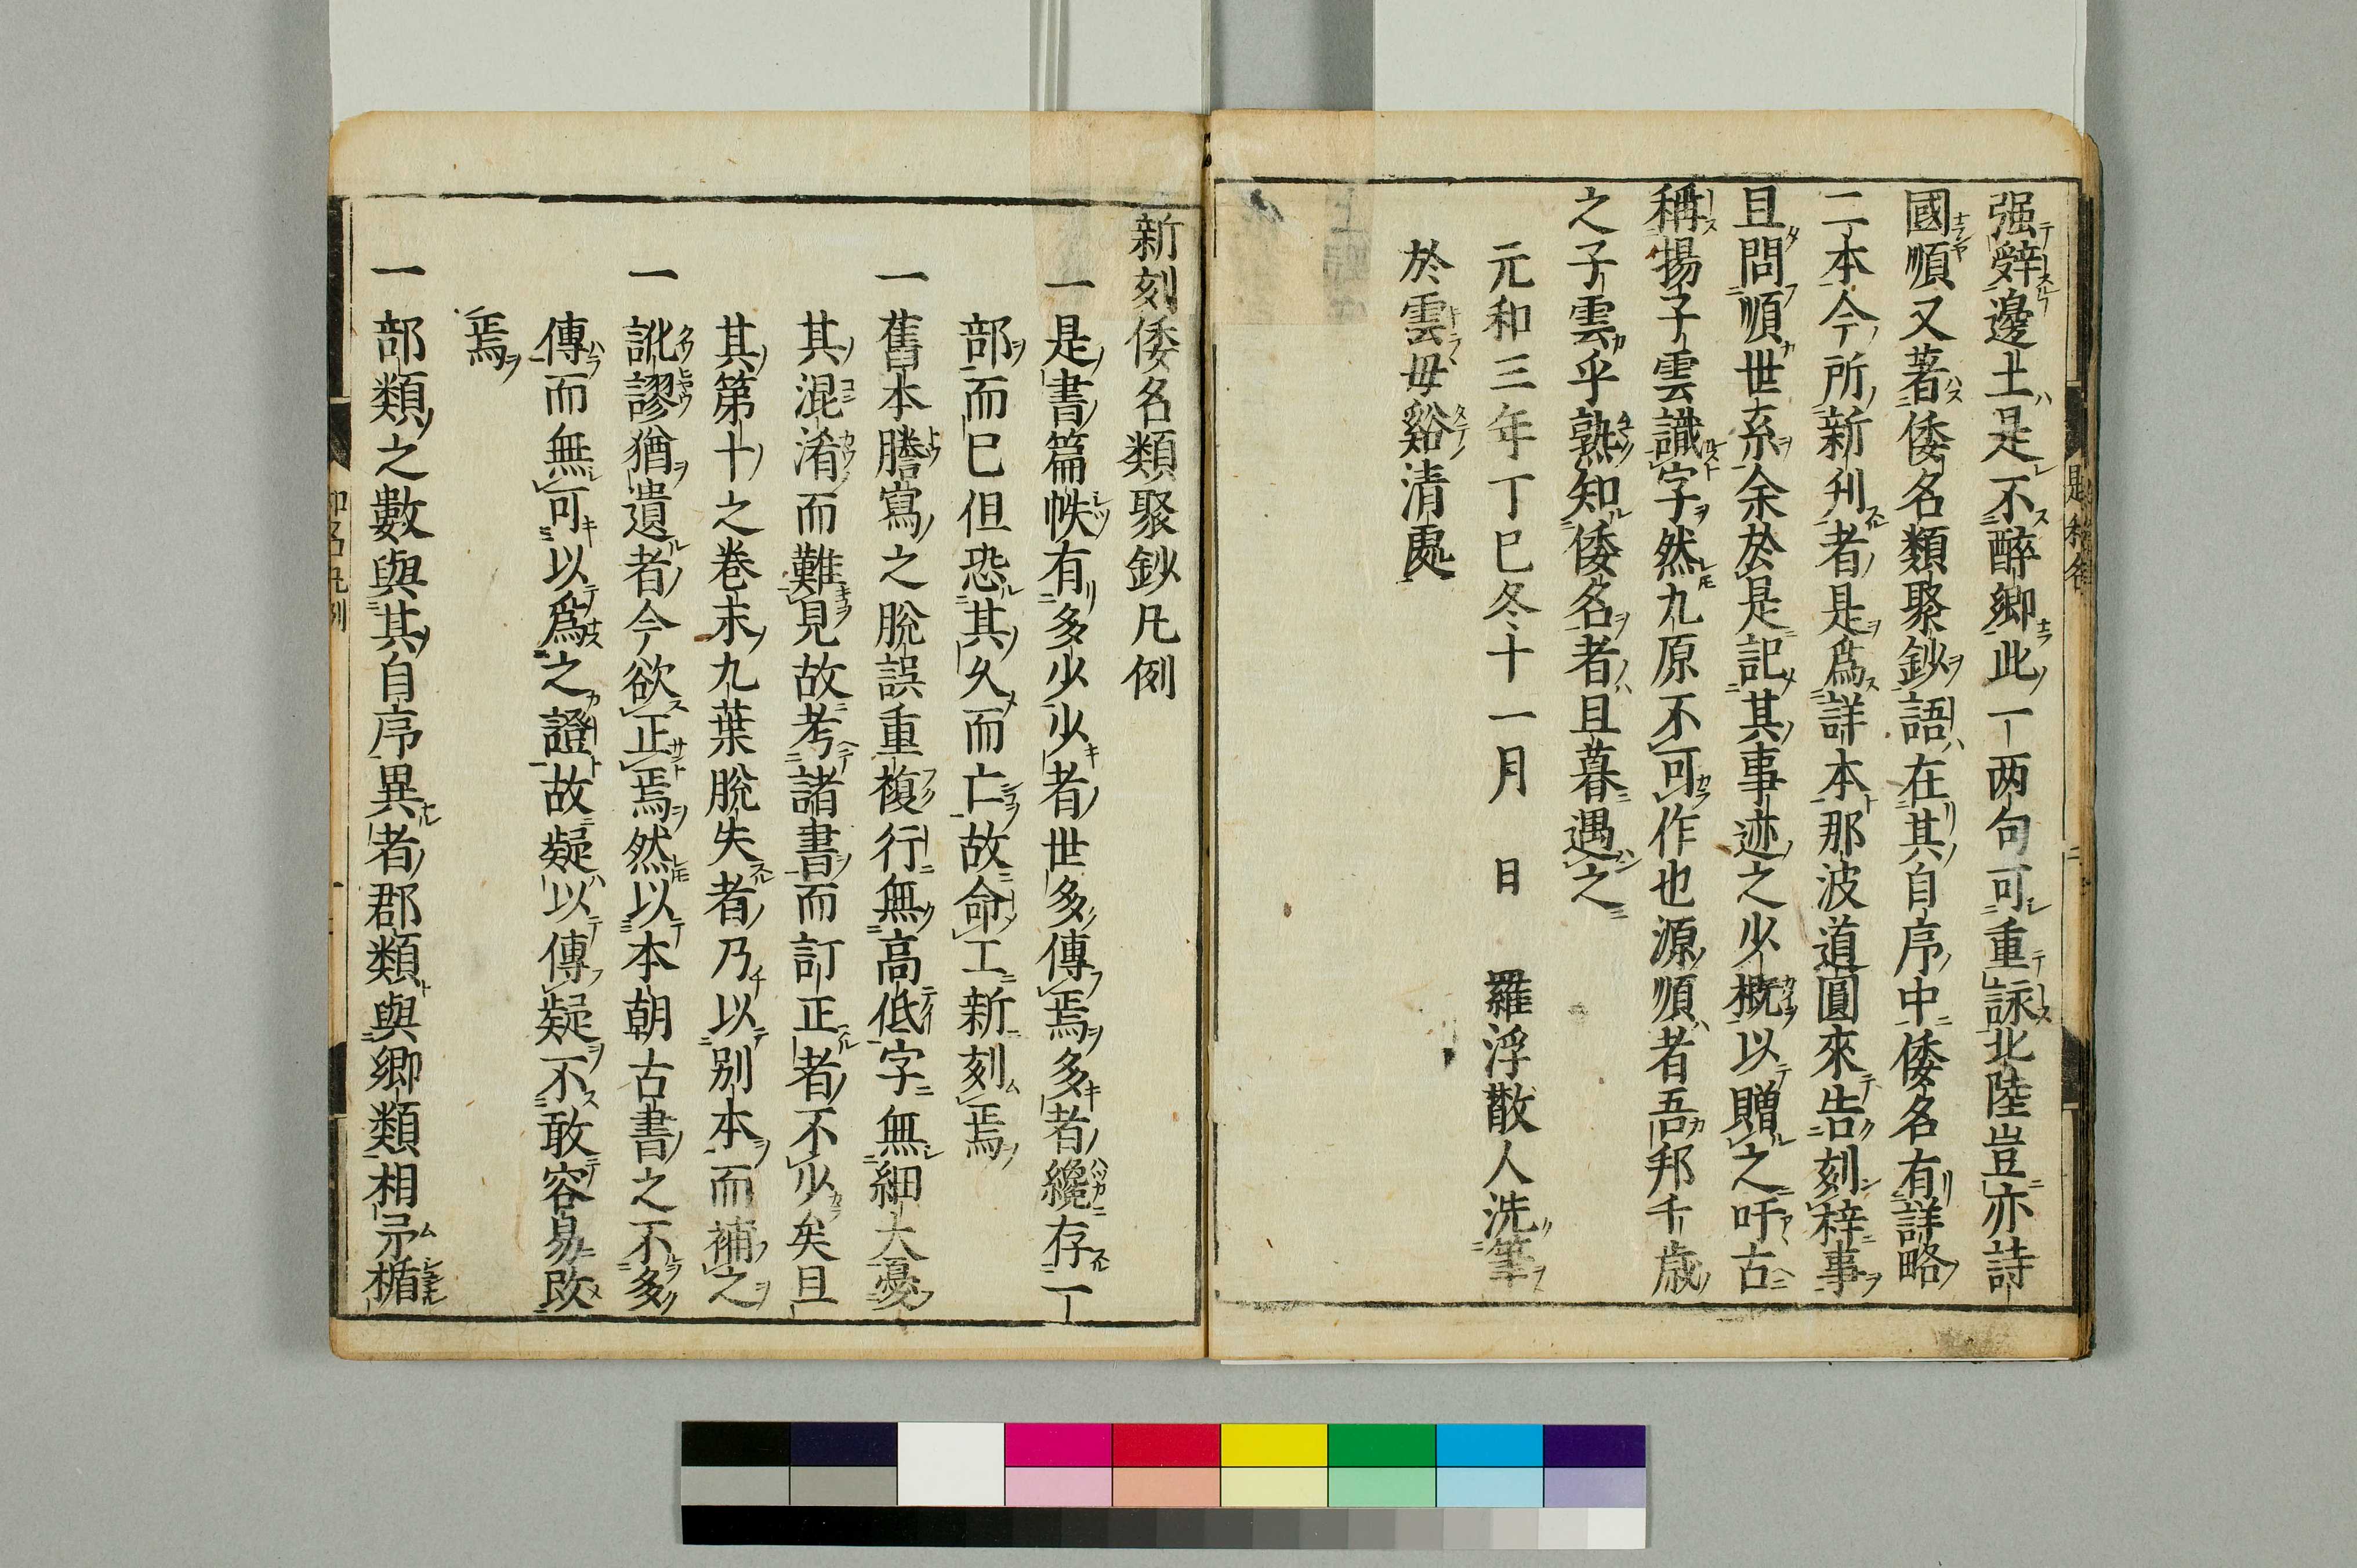 强辤邊土是不醉鄉此一两句可重詠北陸豈亦詩
國順又著倭名類聚鈔語在其自序中倭名有詳略
二本今所新刋者是爲詳本那波道圓來告刻梓事
且問順世系余於是記其事迹之少概以贈之吁古
稱揚子雲識字然九原不可作也源順者吾邦千歲
之子雲乎熟知倭名者且暮遇之
元和三年丁巳冬十一月 日 羅浮散人洗筆
於雲母谿清處
新刻倭名類聚鈔凡例
一是書篇帙有多少少者世多傳焉多者纔存一
部而已但恐其久而亡故命工新刻焉
一舊本謄寫之脫誤重複行無高低字無細大憂
其混淆而難見故考諸書而訂正者不少矣且
其第十之卷末九葉脫失者乃以別本而補之
一訛謬猶遺者今欲正焉然以本朝古書之不多
傳而無可以爲之證故疑以傳疑不敢容易改
焉
一部類之數與其自序異者郡類與鄉類相矛楯